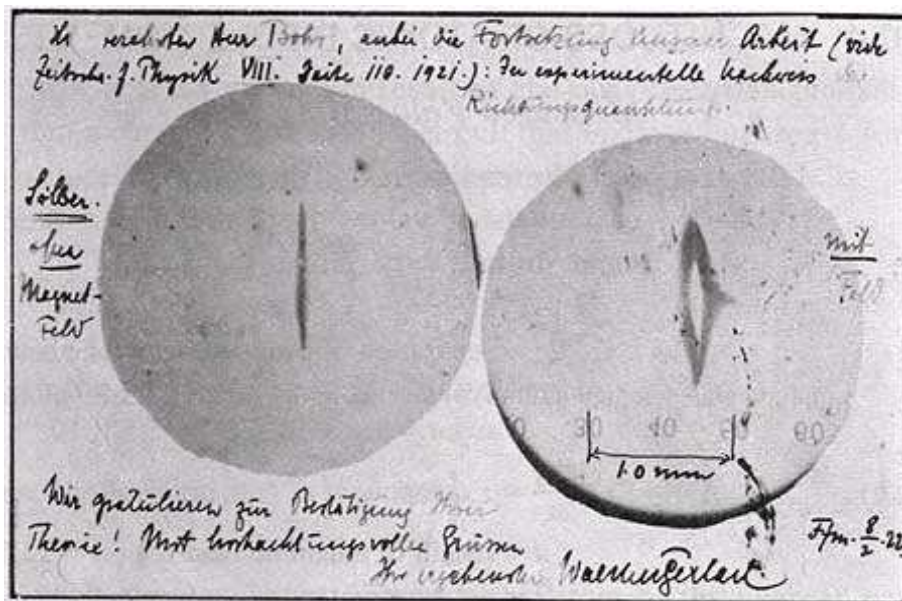 verehrter Herr Bohr, anbei die Fortsetzung unserer Arbeit (vide
Zeitschr. f. Physik VIII. Seite 110. 1921.): Der experimentelle Nachweis
Richtungsquantelung.
Silber.
ohne
Magnet-
Feld
mit
Feld
30 40 60
1.0 mm
Wir gratulieren zur Bestätigung Ihrer
Theorie! Mit hochachtungsvollen Grüssen
Ihr ergebenster Walther Gerlach.
Ffm. 8/2 22